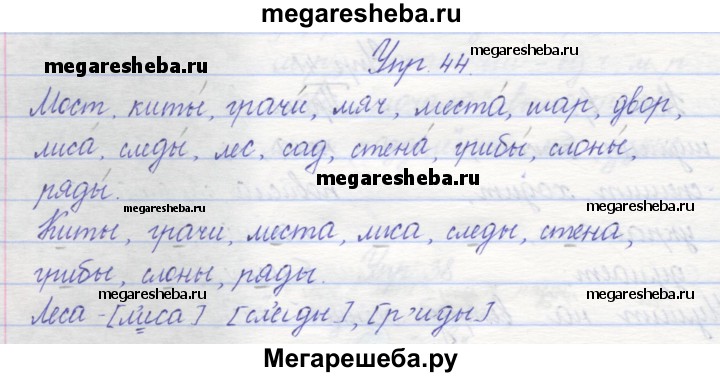 megaresheba.ru
Упр. 44. megaresheba.ru
megaresheba.ru
Мост, киты́, грачи́, мяч, места́, шар, двор,
лиса́, следы́, лес, сад, стена́, грибы́, слоны́,
megaresheba.ru
ряды́.
megaresheba.ru
Киты, грачи, места, лиса, следы, стена,
грибы, слоны, ряды.
megaresheba.ru megaresheba.ru
Леса - [л'иса] [сл'иды], [р'иды]
Мегарешеба.ру